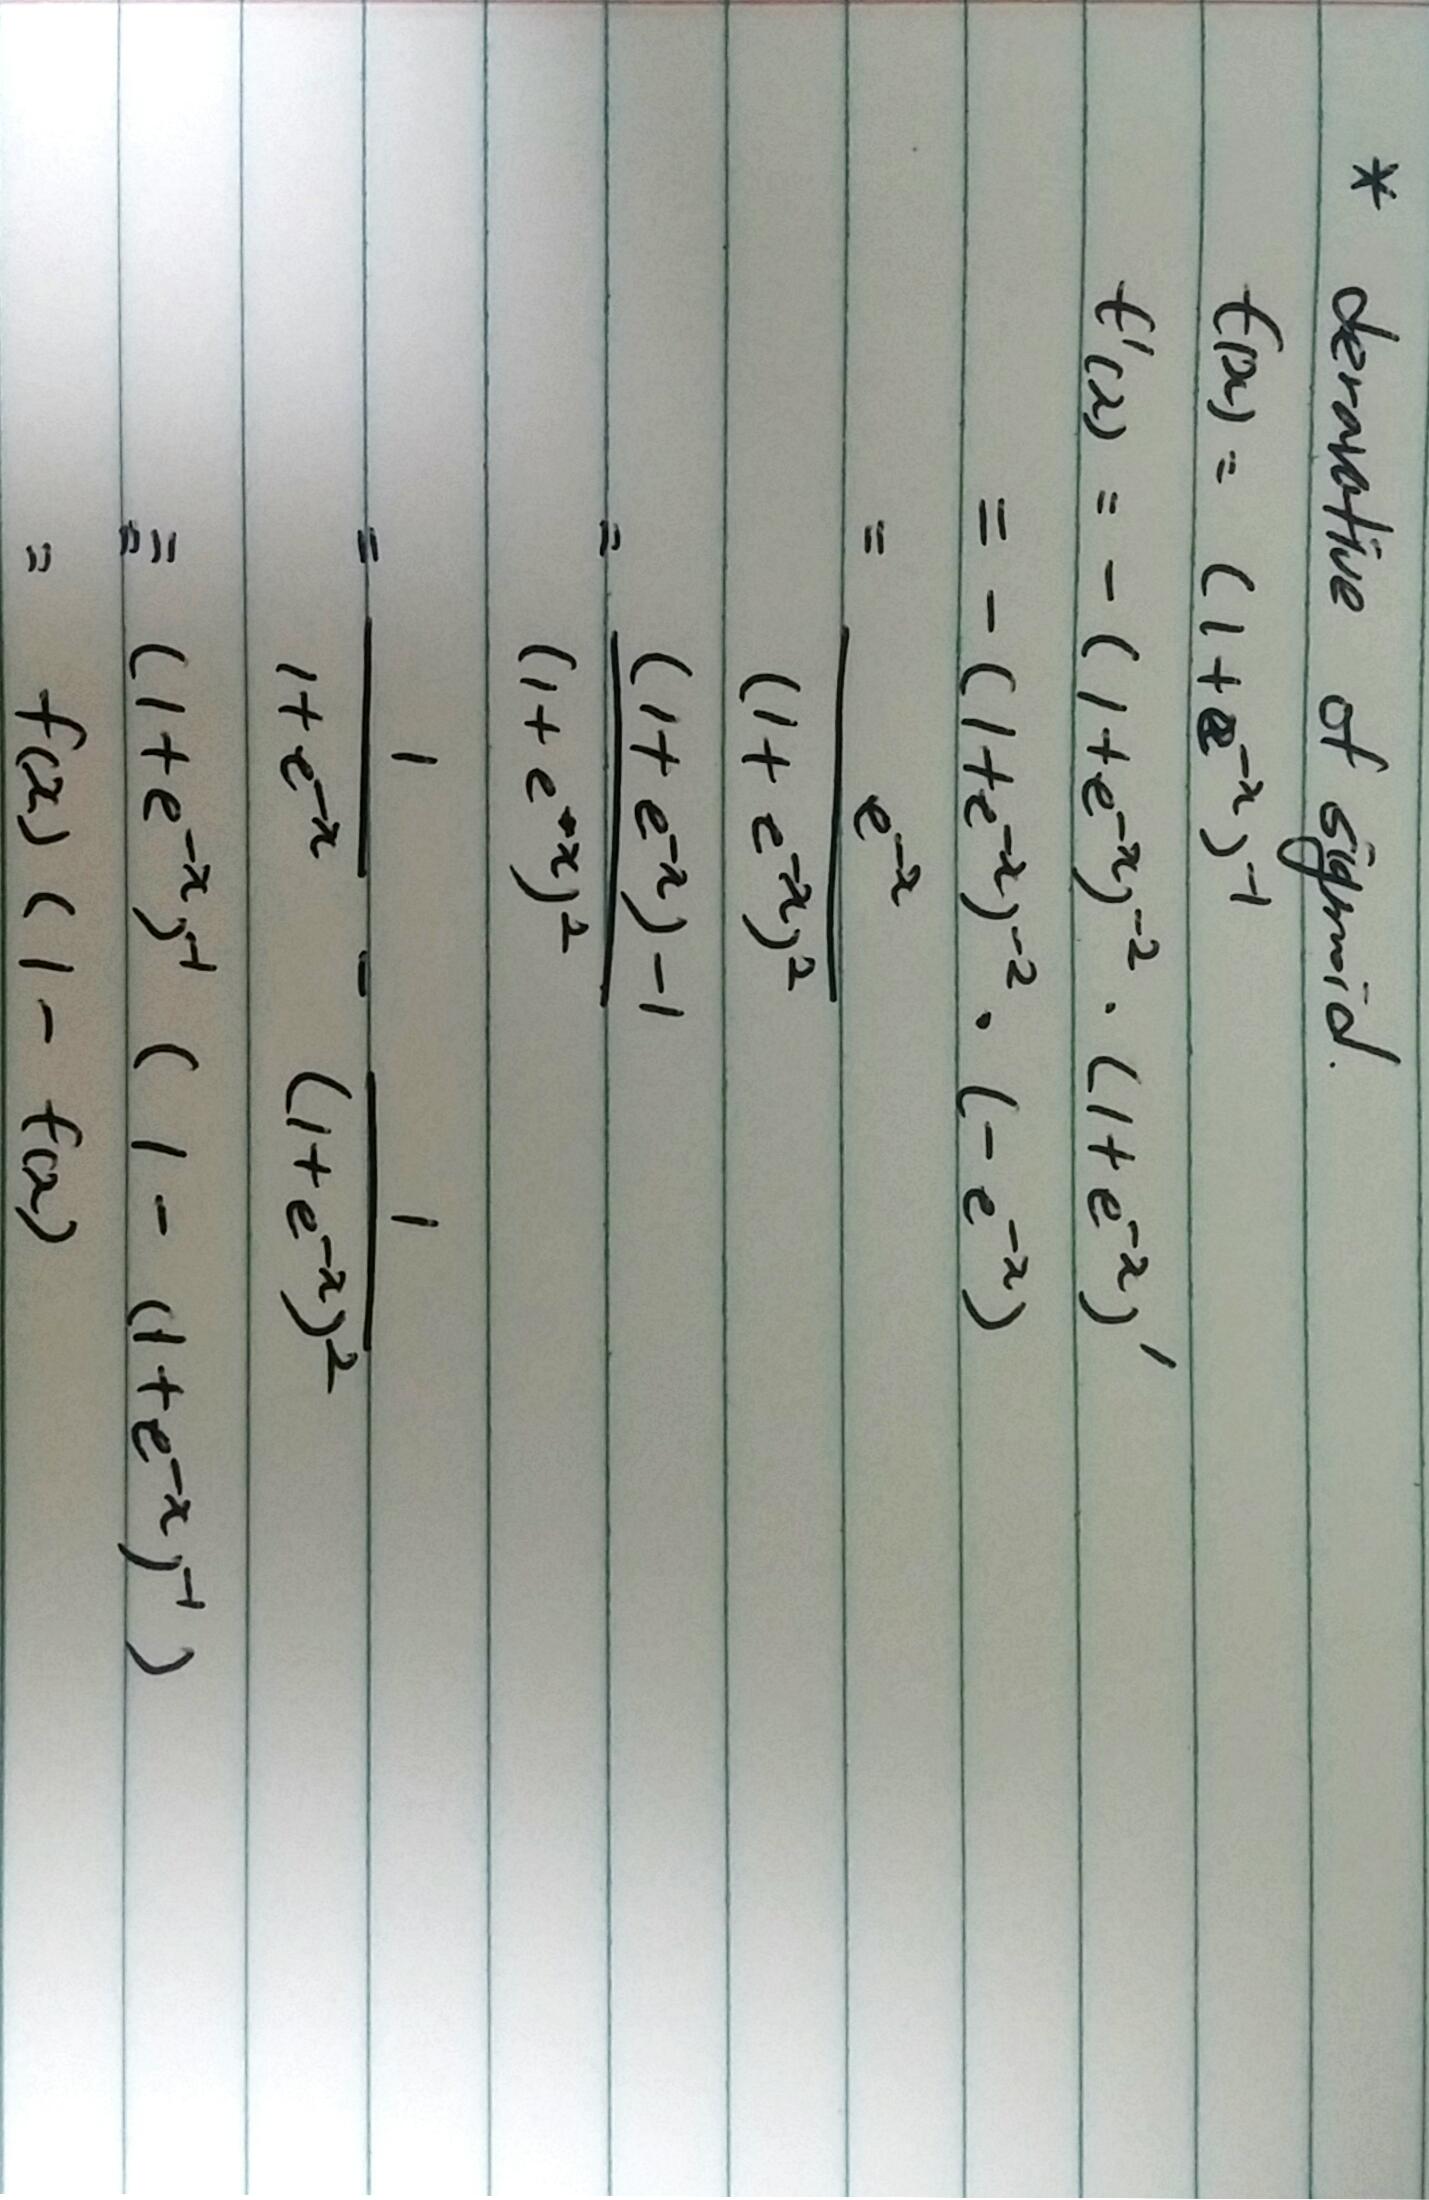 * derivative of sigmoid.
f(x) = (1+e^-x)^-1
f'(x) = -(1+e^-x)^-2 · (1+e^-x)'
= -(1+e^-x)^-2 · (-e^-x)
= e^-x / (1+e^-x)^2
= (1+e^-x)-1 / (1+e^-x)^2
= 1 / 1+e^-x - 1 / (1+e^-x)^2
= (1+e^-x)^-1 (1 - (1+e^-x)^-1)
= f(x) (1 - f(x)